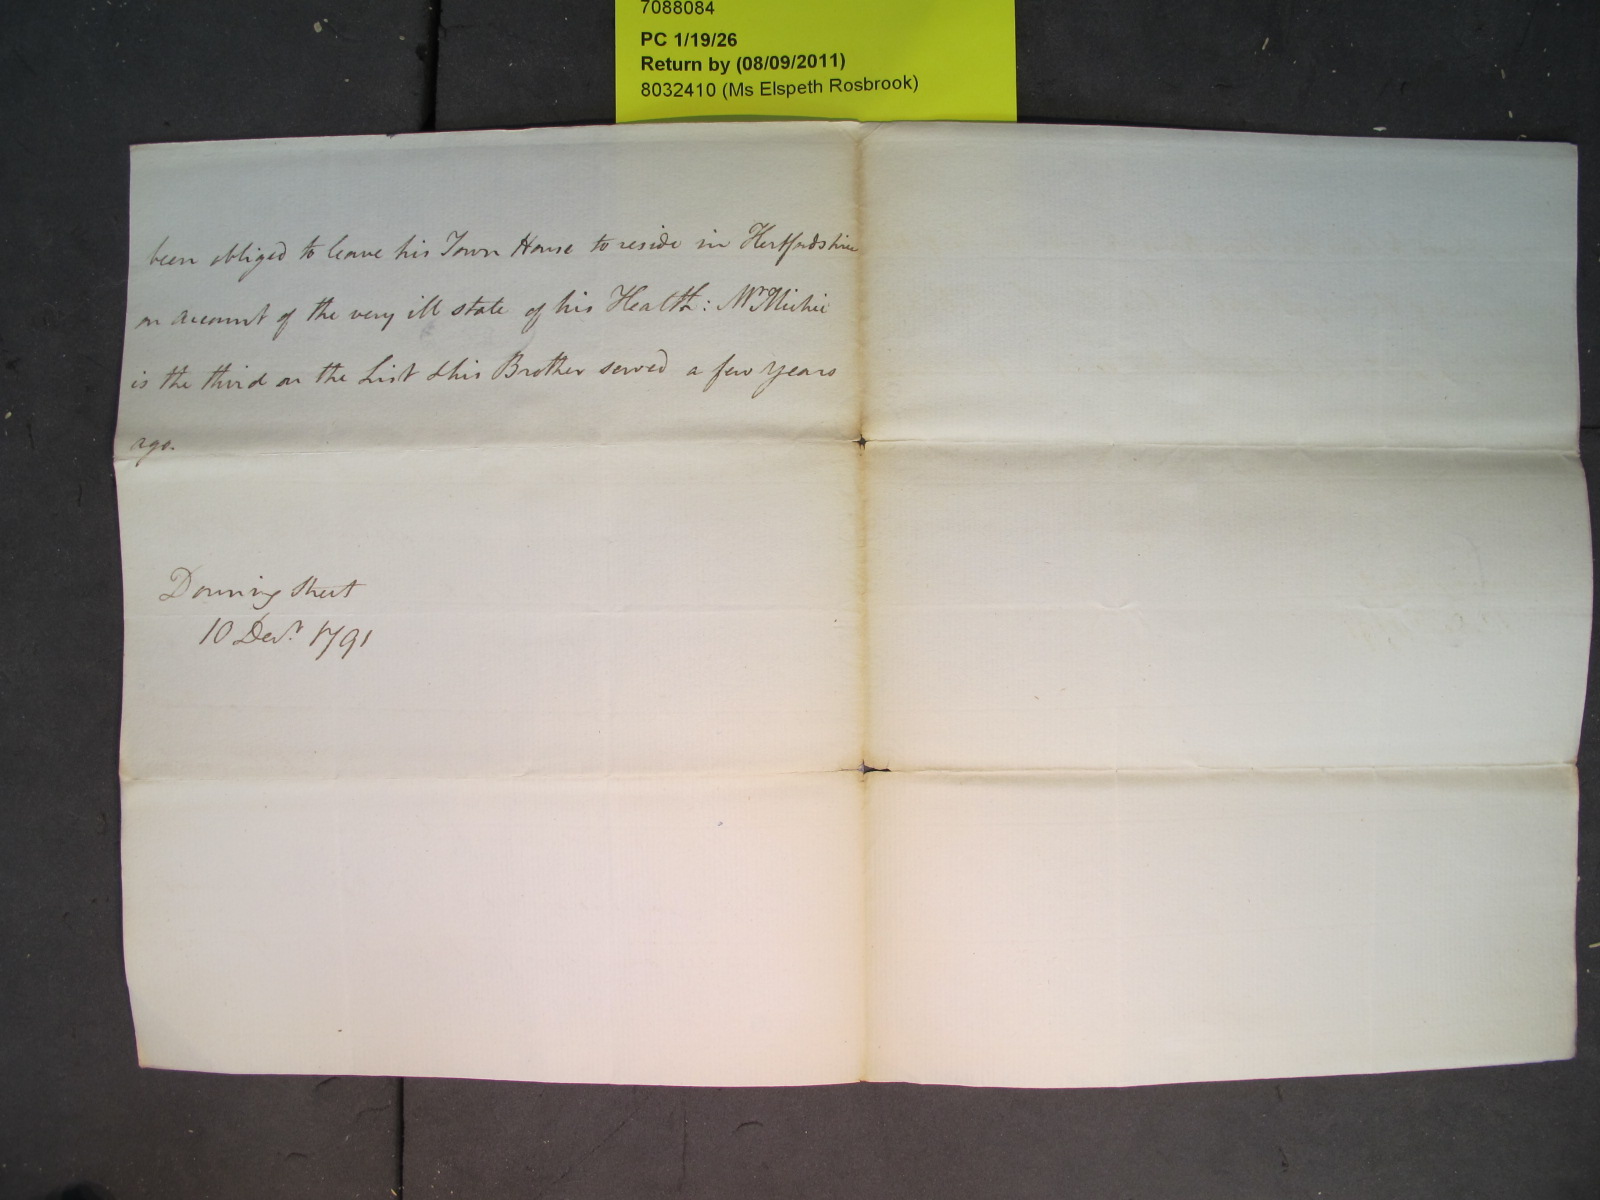 7088084
PC 1/19/26
Return by (08/09/2011)
8032410 (Ms Elspeth Rosbrook)
been obliged to leave his Town House to reside in Hertfordshire
on account of the very ill state of his Health: Mr Michie
is the third on the List & his Brother served a few years
ago.
Downing Street
10 Decr. 1791